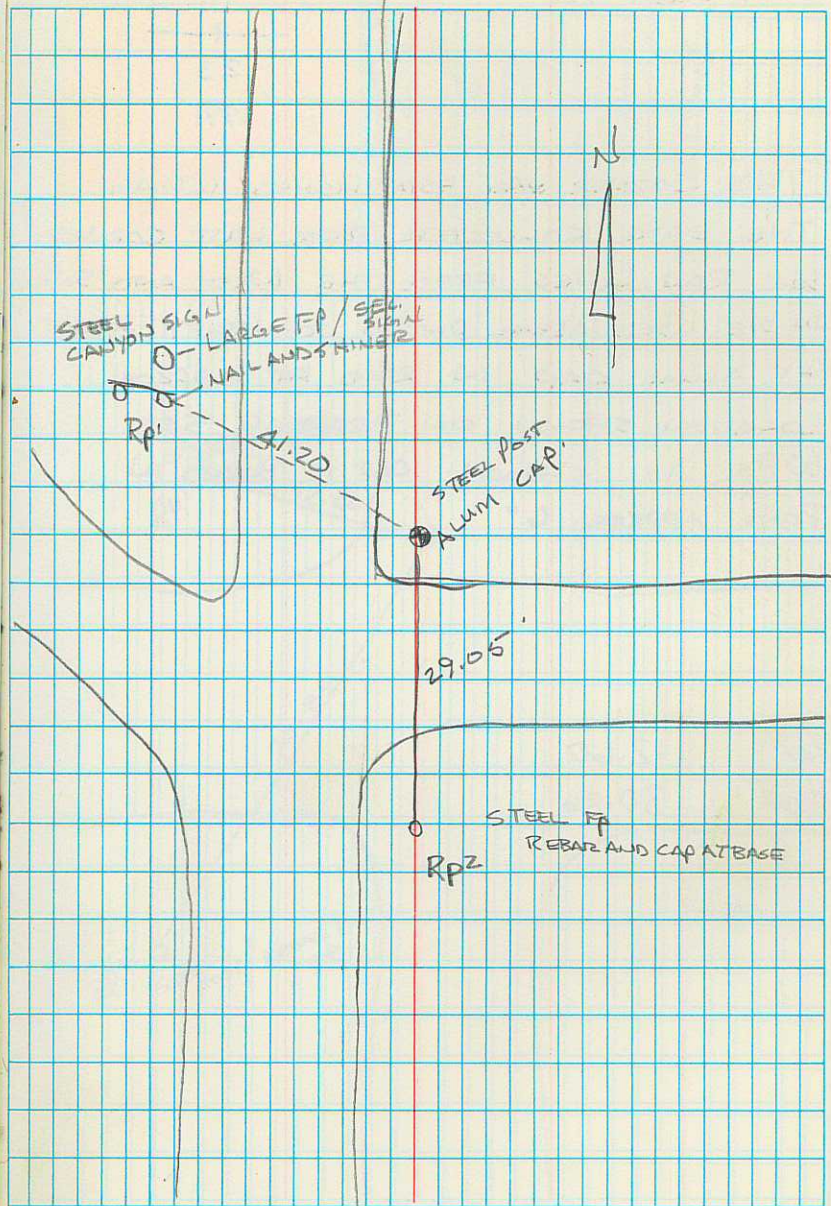 N
STEEL
CANYON SIGN
LARGE FP / SEC.
SIGN
NAIL AND SHINER
Rp1
41.20
STEEL POST
ALUM CAP.
29.05'
STEEL Fp
REBAR AND CAP AT BASE
Rp2